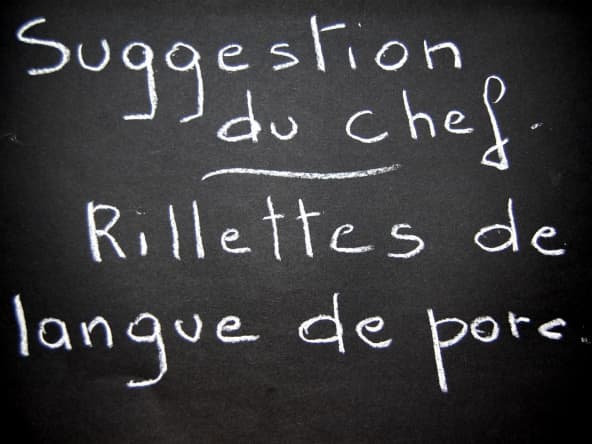 Suggestion
du chef
Rillettes de
langue de porc.